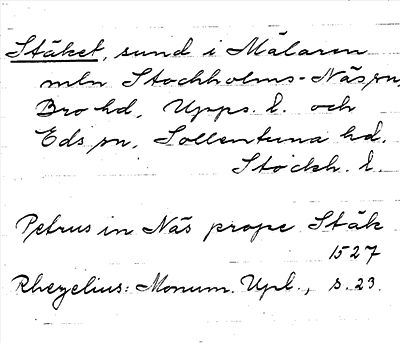 Stäket, sund i Mälaren
mln Stockholms-Näs sn,
Bro hd, Upps. l. och
Eds sn, Sollentuna hd.
Stockh. l.
Petrus in Näs prope Stäk
1527
Rhezelius: Monum. Upl., s. 23.